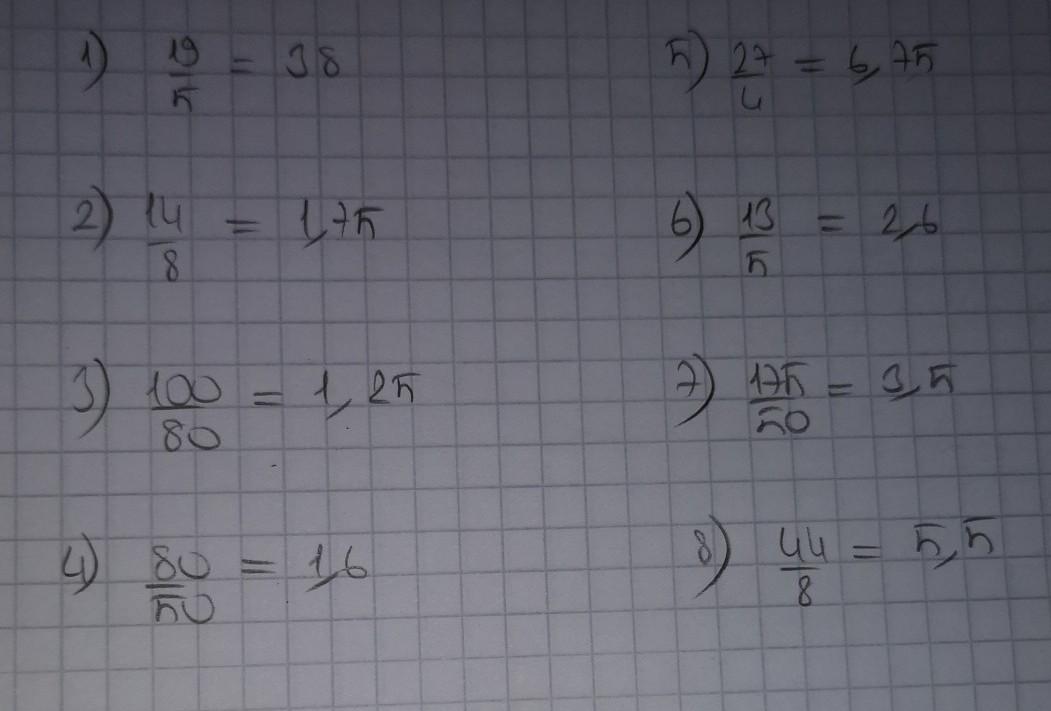 1) 19/5 = 38
2) 14/8 = 1,75
3) 100/80 = 1,25
4) 80/50 = 1,6
5) 27/4 = 6,75
6) 13/5 = 2,6
7) 175/50 = 3,5
8) 44/8 = 5,5